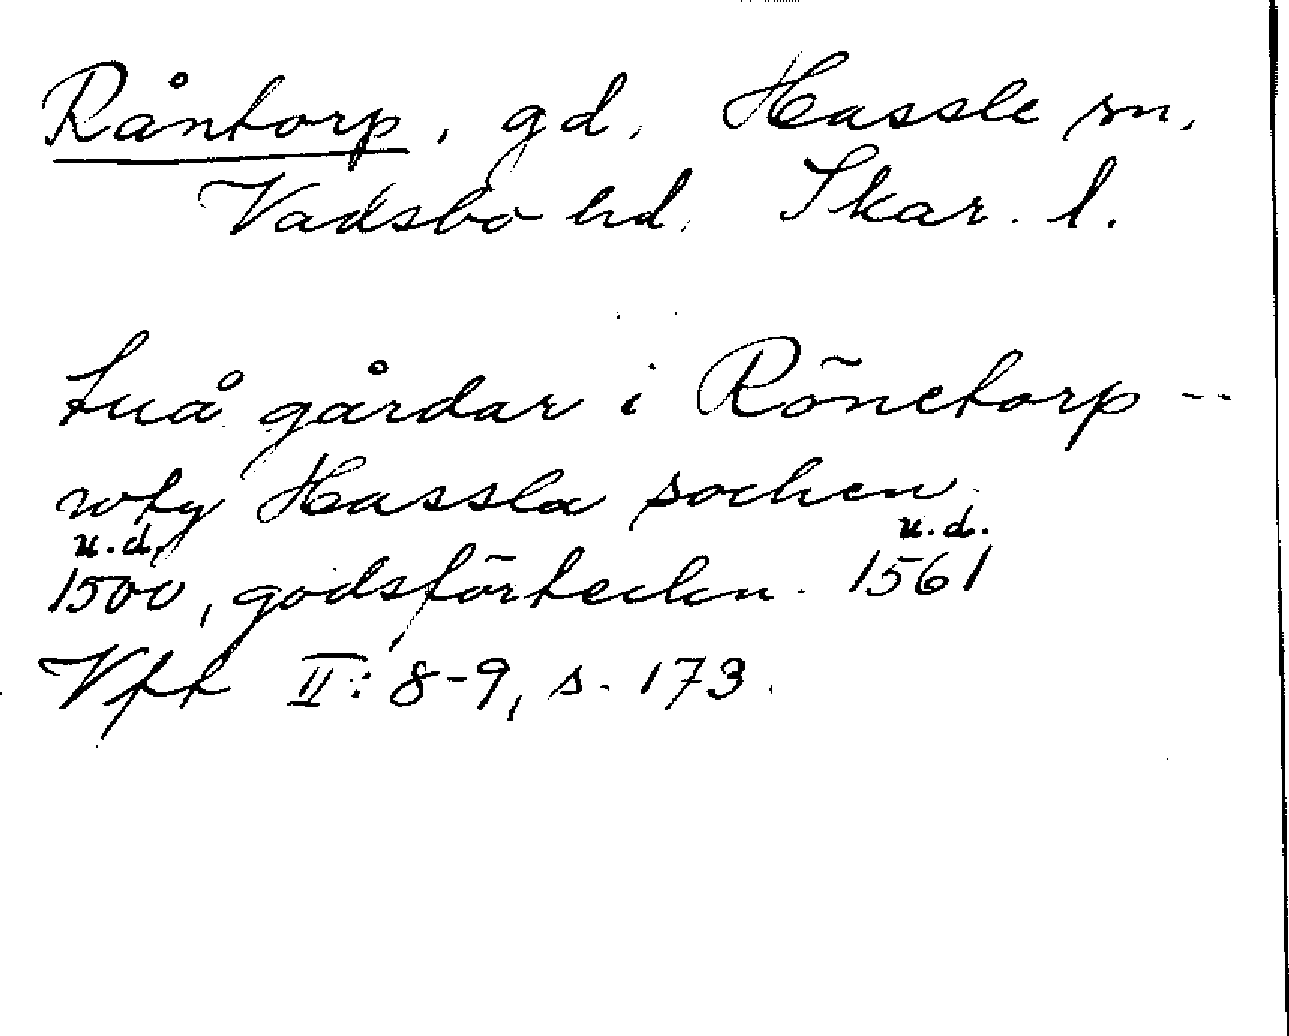 Råntorp, gd, Hassle sn,
Vadsbo hd, Skar. l.
tuå gårdar i Rönetorp --
wty Hassla sochen
u.d. u.d.
1500, godsförteckn. 1561
Vfft II: 8-9, s. 173.